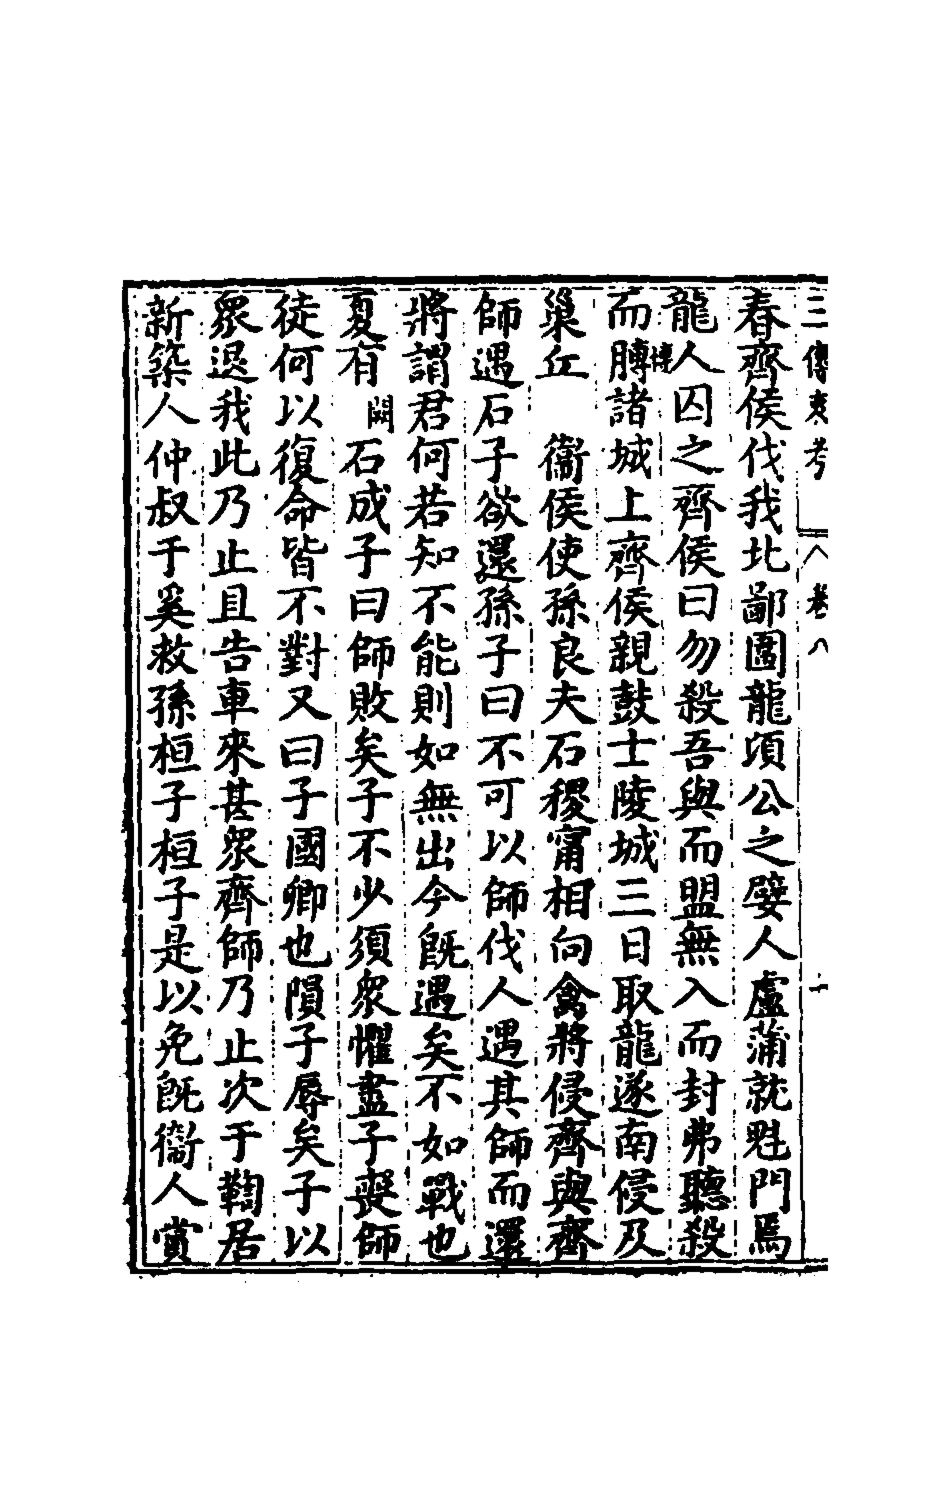 三傳辨考 八 卷八 十
春齊侯伐我北鄙圍龍頃公之嬖人盧蒲就魁門焉
龍人囚之齊侯曰勿殺吾與而盟無入而封弗聽殺
而膊博諸城上齊侯親鼓士陵城三日取龍遂南侵及
巢丘 衞侯使孫良夫石稷甯相向禽將侵齊與齊
師遇石子欲還孫子曰不可以師伐人遇其師而還
將謂君何若知不能則如無出今既遇矣不如戰也
夏有 闕 石成子曰師敗矣子不少須衆懼盡子喪師
徒何以復命皆不對又曰子國卿也隕子辱矣子以
衆退我此乃止且告車來甚衆齊師乃止次于鞫居
新築人仲叔于奚救孫桓子桓子是以免既衞人賞